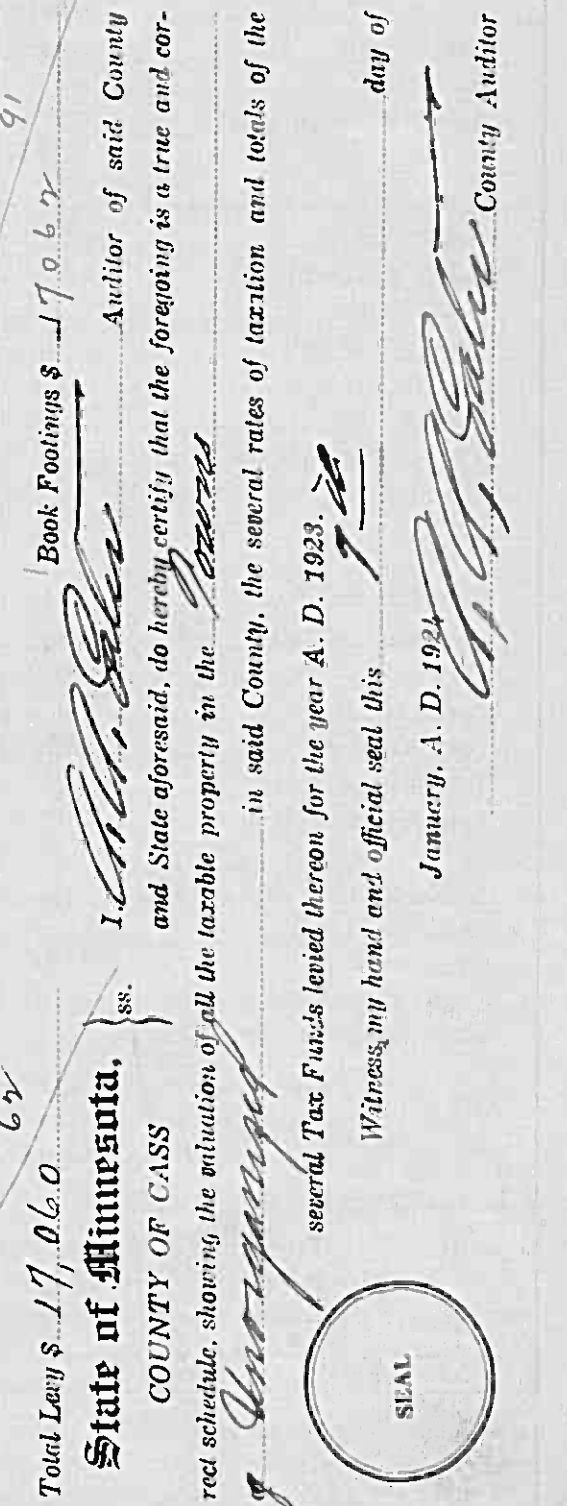 62
91
Total Levy $ 17,060 Book Footings $ 17062
State of Minnesota,
COUNTY OF CASS
} ss.
I. Auditor of said County
and State aforesaid, do hereby certify that the foregoing is a true and cor-
rect schedule, showing the valuation of all the taxable property in the Towns
of Unorganized in said County, the several rates of taxation and totals of the
several Tax Funds levied thereon for the year A. D. 1923.
Witness, my hand and official seal this 7th day of
January, A. D. 1924
County Auditor
SEAL